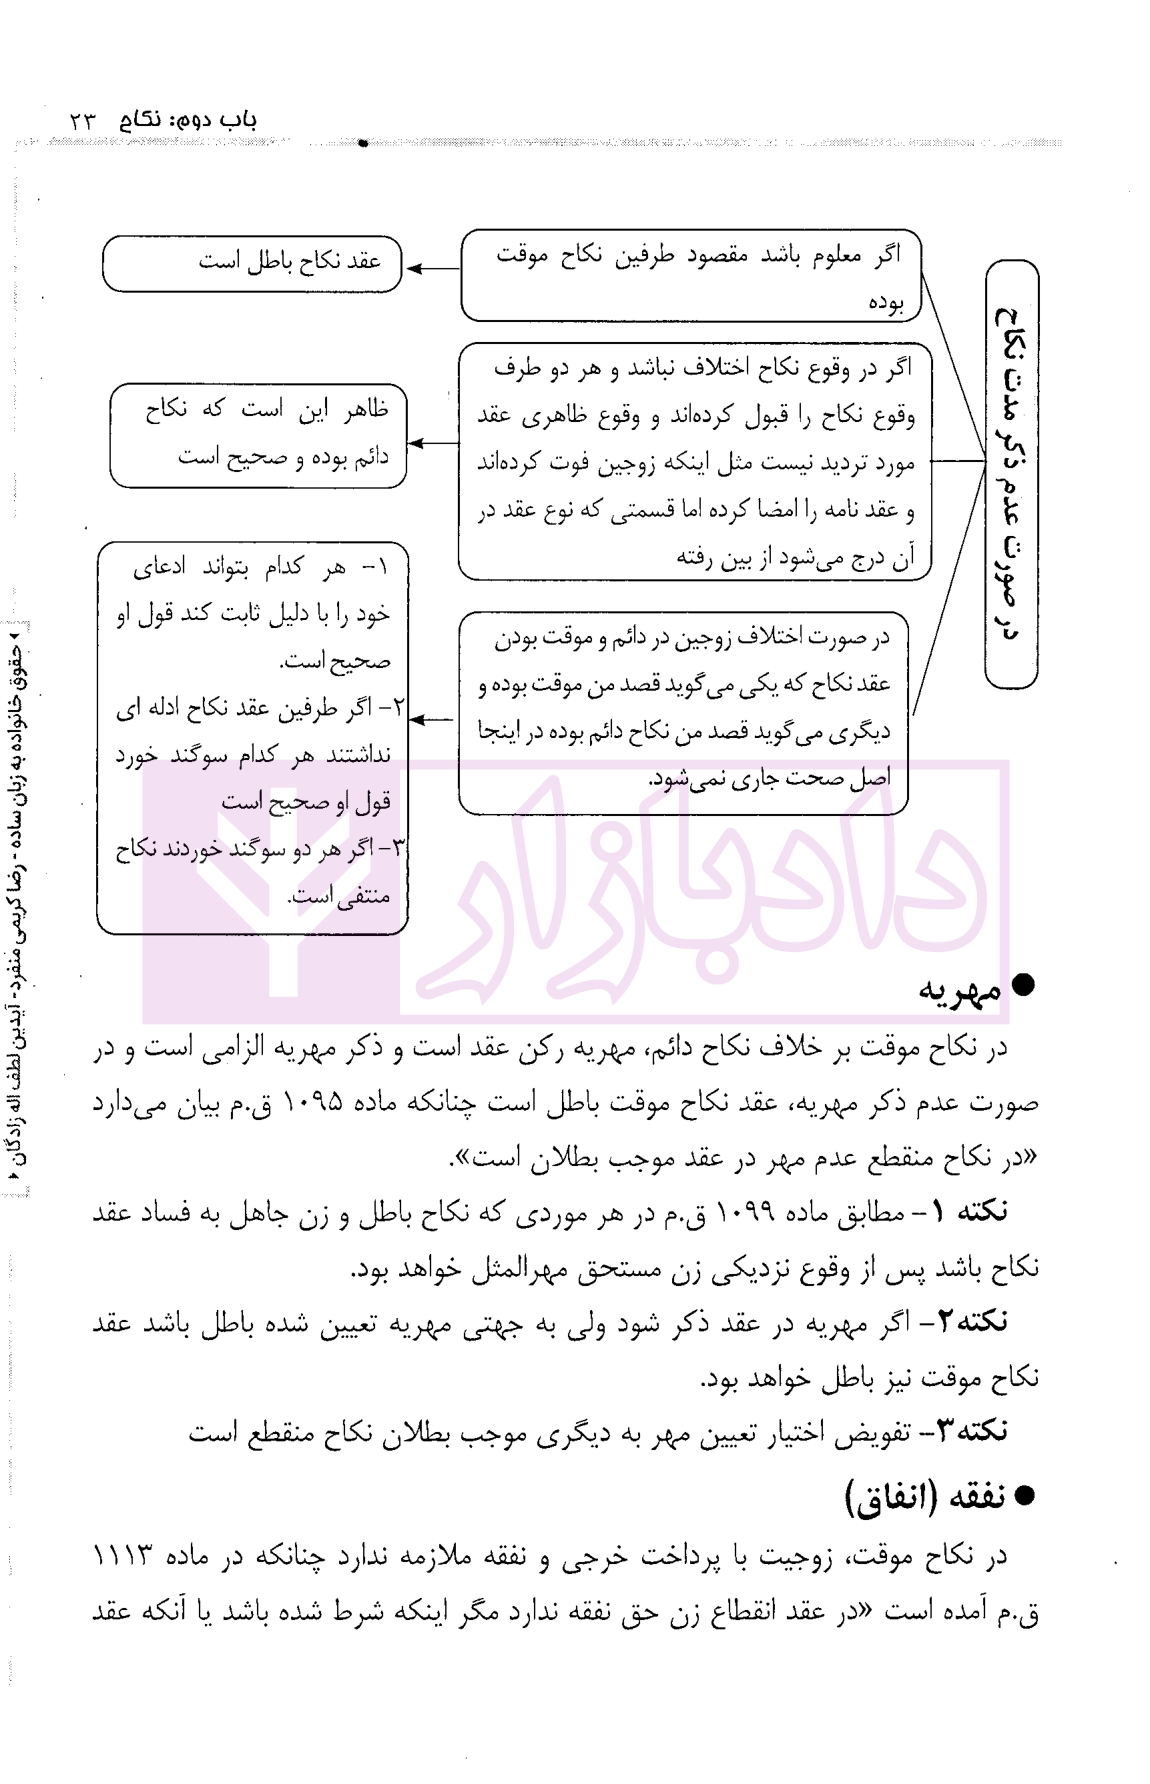 باب دوم: نکاح ۲۳
در صورت عدم ذکر مدت نکاح
اگر معلوم باشد مقصود طرفین نکاح موقت
بوده
عقد نکاح باطل است
اگر در وقوع نکاح اختلاف نباشد و هر دو طرف
وقوع نکاح را قبول کرده‌اند و وقوع ظاهری عقد
مورد تردید نیست مثل اینکه زوجین فوت کرده‌اند
و عقد نامه را امضا کرده اما قسمتی که نوع عقد در
آن درج می‌شود از بین رفته
ظاهر این است که نکاح
دائم بوده و صحیح است
در صورت اختلاف زوجین در دائم و موقت بودن
عقد نکاح که یکی می‌گوید قصد من موقت بوده و
دیگری می‌گوید قصد من نکاح دائم بوده در اینجا
اصل صحت جاری نمی‌شود.
۱- هر کدام بتواند ادعای
خود را با دلیل ثابت کند قول او
صحیح است.
۲- اگر طرفین عقد نکاح ادله ای
نداشتند هر کدام سوگند خورد
قول او صحیح است
۳- اگر هر دو سوگند خوردند نکاح
منتفی است.
دادبازار
● مهریه
در نکاح موقت بر خلاف نکاح دائم، مهریه رکن عقد است و ذکر مهریه الزامی است و در
صورت عدم ذکر مهریه، عقد نکاح موقت باطل است چنانکه ماده ۱۰۹۵ ق.م بیان می‌دارد
«در نکاح منقطع عدم مهر در عقد موجب بطلان است».
نکته ۱- مطابق ماده ۱۰۹۹ ق.م در هر موردی که نکاح باطل و زن جاهل به فساد عقد
نکاح باشد پس از وقوع نزدیکی زن مستحق مهرالمثل خواهد بود.
نکته۲- اگر مهریه در عقد ذکر شود ولی به جهتی مهریه تعیین شده باطل باشد عقد
نکاح موقت نیز باطل خواهد بود.
نکته۳- تفویض اختیار تعیین مهر به دیگری موجب بطلان نکاح منقطع است
● نفقه (انفاق)
در نکاح موقت، زوجیت با پرداخت خرجی و نفقه ملازمه ندارد چنانکه در ماده ۱۱۱۳
ق.م آمده است «در عقد انقطاع زن حق نفقه ندارد مگر اینکه شرط شده باشد یا آنکه عقد
حقوق خانواده به زبان ساده - رضا کریمی منفرد- آیدین لطف اله زادگان